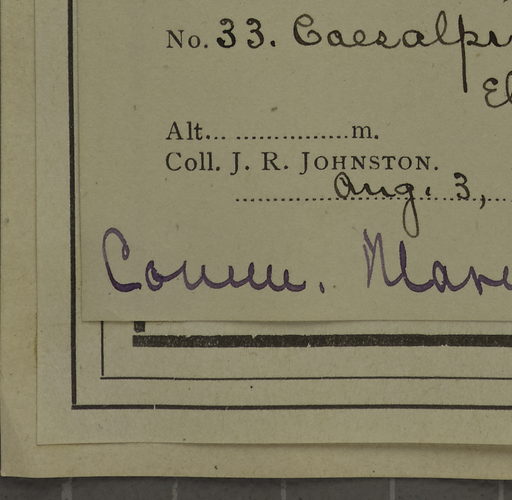 No. 33. Caesalpi
El
Alt... ...............m.
Coll. J. R. JOHNSTON.
Aug. 3,
Comm. Mar